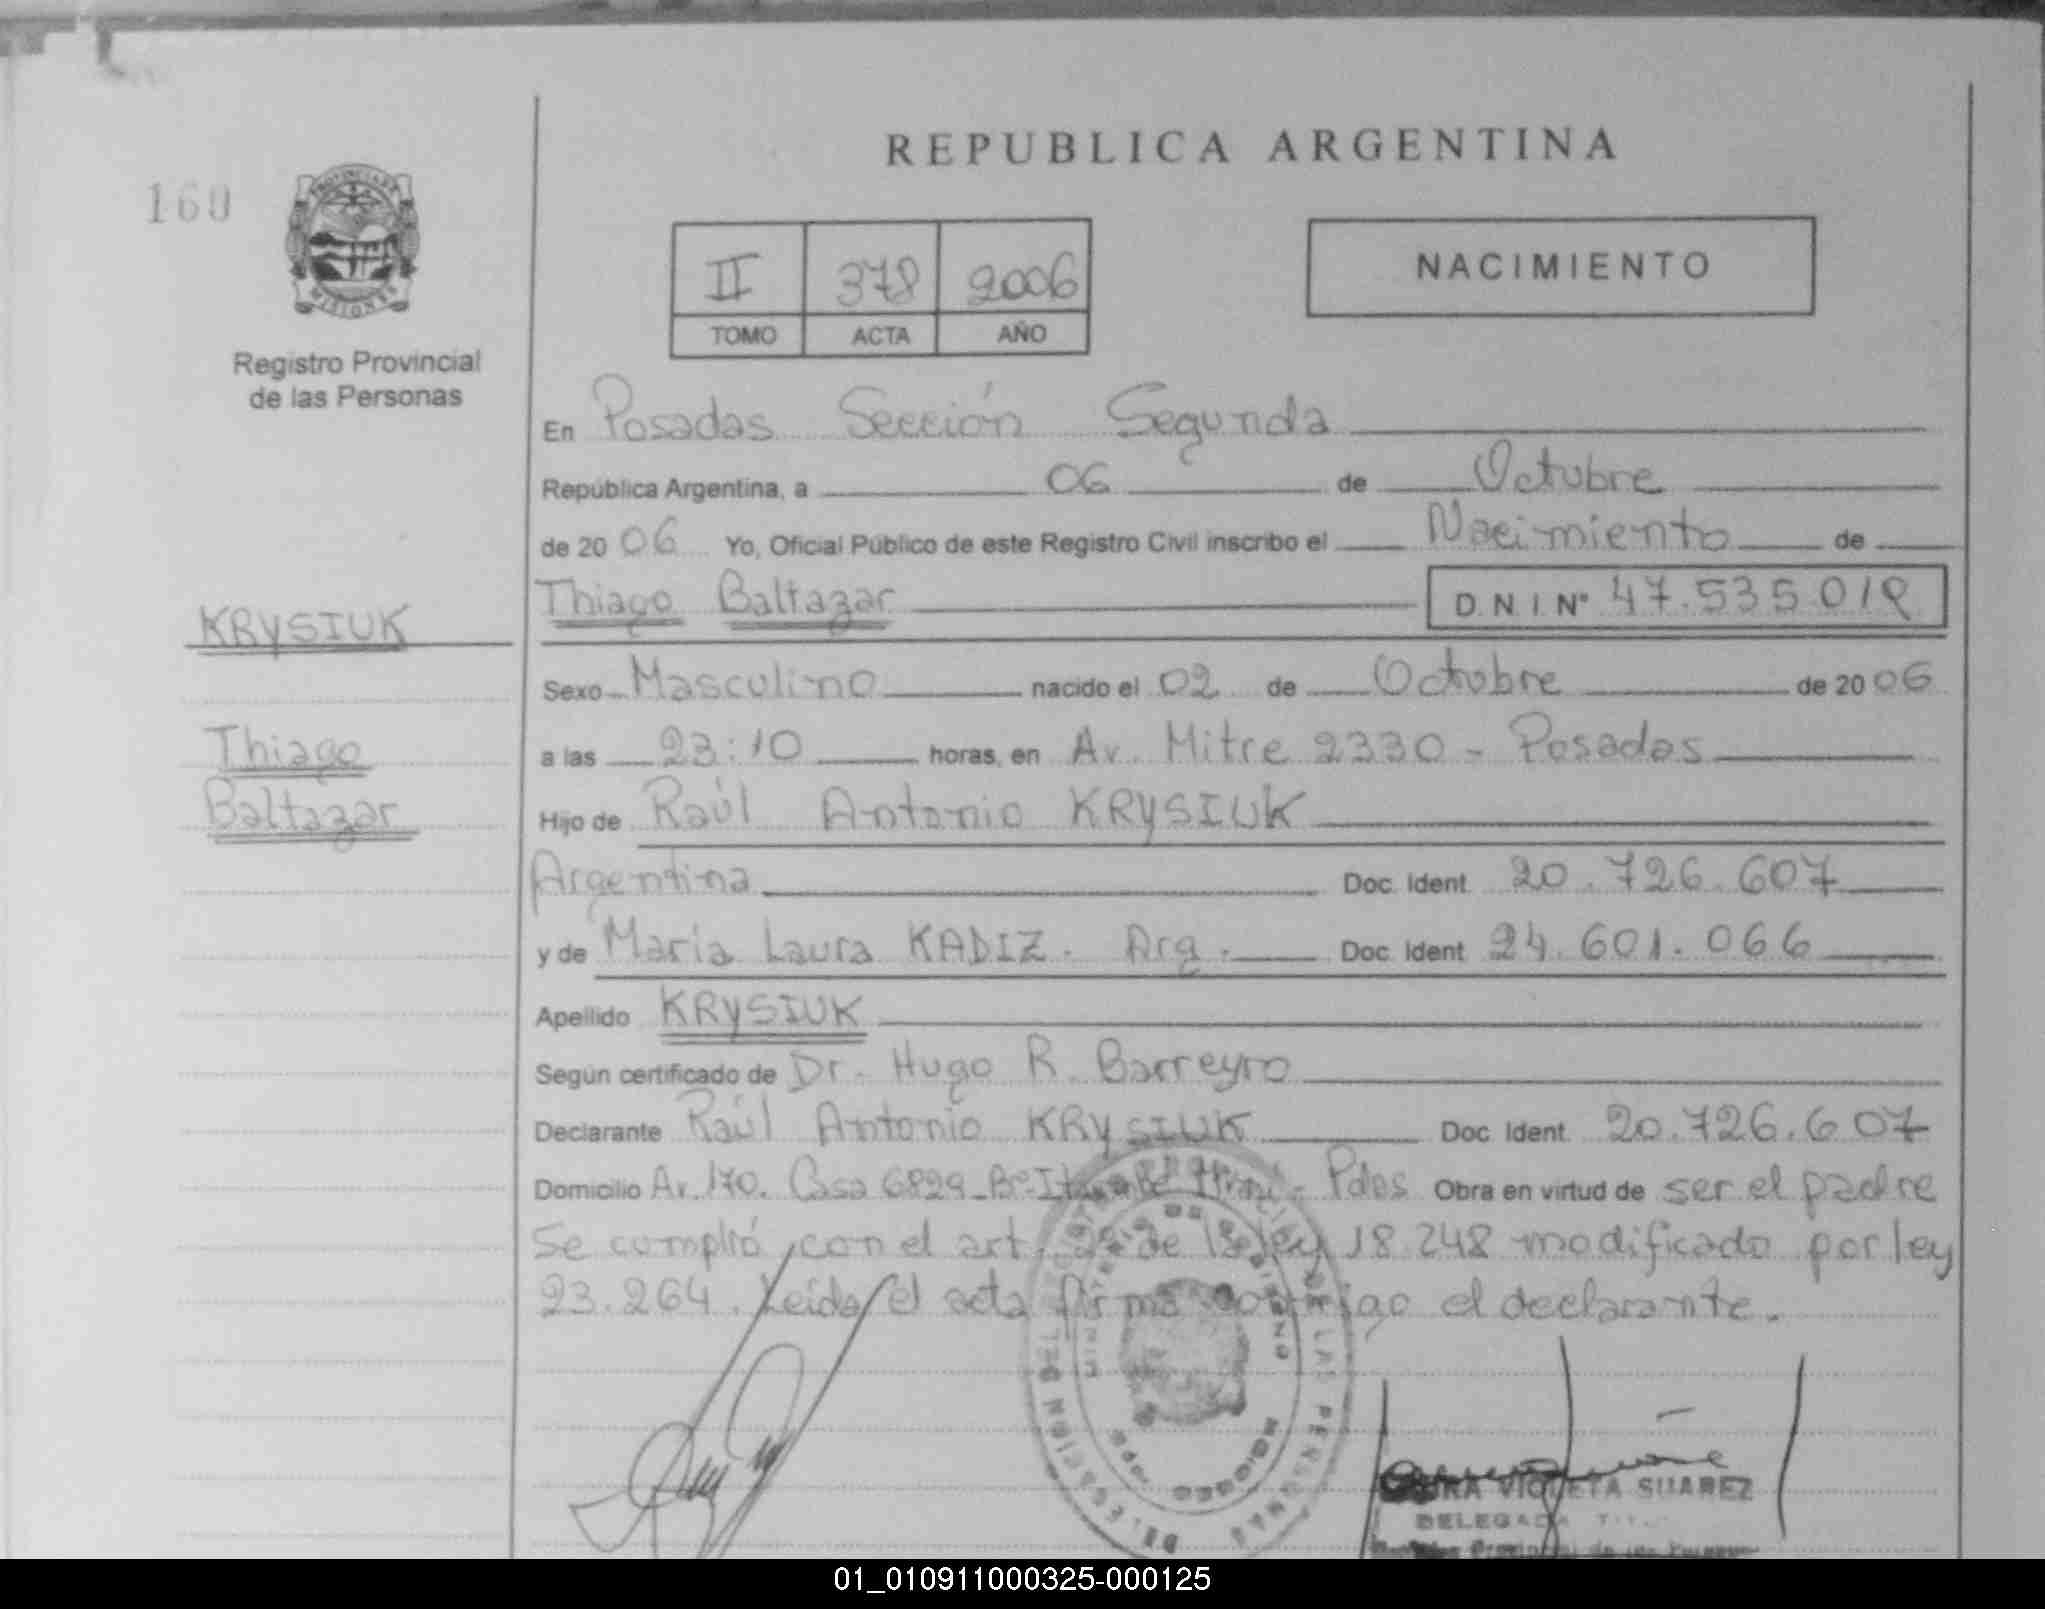 REPUBLICA ARGENTINA
160
PROVINCIA DE
MISIONES
Registro Provincial
de las Personas
II 378 2006
TOMO ACTA AÑO
NACIMIENTO
En Posadas Sección Segunda
República Argentina, a 06 de Octubre
de 2006 Yo, Oficial Público de este Registro Civil inscribo el Nacimiento de
Thiago Baltazar D.N.I. Nº 47.535.019
KRYSIUK
Thiago
Baltazar
Sexo Masculino nacido el 02 de Octubre de 2006
a las 23:10 horas, en Av. Mitre 2330 - Posadas
Hijo de Raúl Antonio KRYSIUK
Argentina Doc. Ident. 20.726.607
y de María Laura KADIZ. Arg. Doc. Ident. 24.601.066
Apellido KRYSIUK
Según certificado de Dr. Hugo R. Barreyro
Declarante Raúl Antonio KRYSIUK Doc. Ident. 20.726.607
Domicilio Av. 170. Casa 6829 - Bº - Pdas Obra en virtud de ser el padre
Se cumplió con el art. de la ley 18.248 modificado por ley
23.264. Leída el acta firma conmigo el declarante.
VIOLETA SUAREZ
DELEGADA
01_010911000325-000125